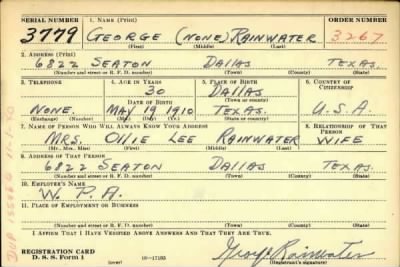 SERIAL NUMBER 1. NAME (Print) ORDER NUMBER
3779 GEORGE (NONE) RAINWATER 3267
(First) (Middle) (Last)
2. ADDRESS (Print)
6822 SEATON DALLAS TEXAS.
(Number and street or R. F. D. number) (Town) (County) (State)
3. TELEPHONE 4. AGE IN YEARS 5. PLACE OF BIRTH 6. COUNTRY OF CITIZENSHIP
30 DALLAS
DATE OF BIRTH (Town or county)
NONE. MAY 19 1910 TEXAS. U.S.A
(Exchange) (Number) (Mo.) (Day) (Yr.) (State or country)
7. NAME OF PERSON WHO WILL ALWAYS KNOW YOUR ADDRESS 8. RELATIONSHIP OF THAT PERSON
MRS. OLLIE LEE RAINWATER WIFE
(Mr., Mrs., Miss) (First) (Middle) (Last)
9. ADDRESS OF THAT PERSON
6822 SEATON DALLAS TEXAS.
(Number and street or R. F. D. number) (Town) (County) (State)
10. EMPLOYER'S NAME
W. P. A.
11. PLACE OF EMPLOYMENT OR BUSINESS
(Number and street or R. F. D. number) (Town) (County) (State)
I AFFIRM THAT I HAVE VERIFIED ABOVE ANSWERS AND THAT THEY ARE TRUE.
REGISTRATION CARD
D. S. S. Form 1 (over) 16—17105 George Rainwater
(Registrant's signature)